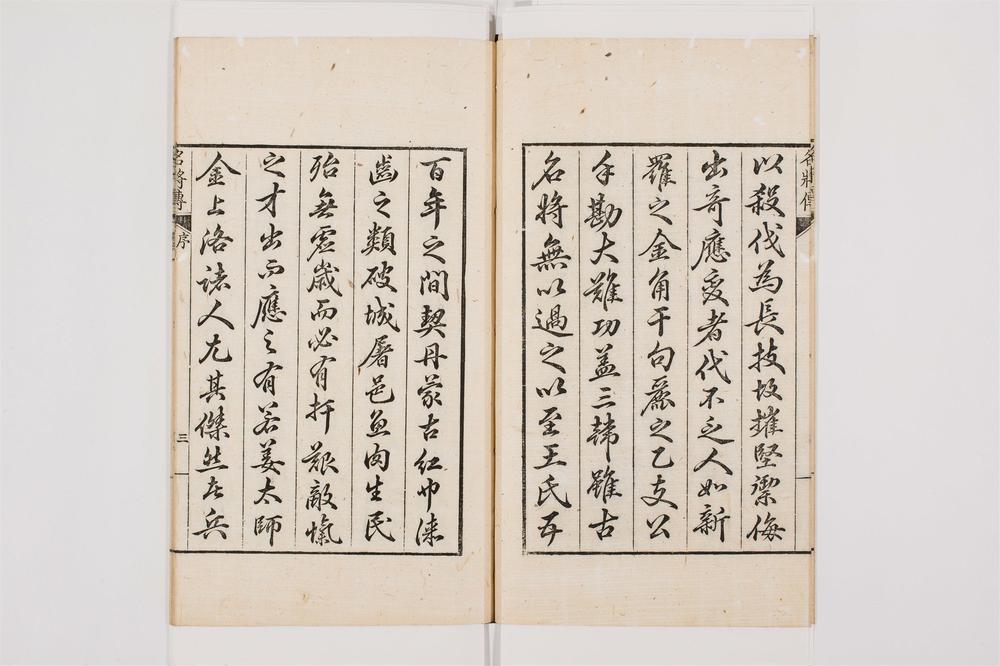 名將傳
以殺伐為長技故摧堅禦侮
出奇應变者代不乏人如新
羅之金角干句麗之乙支公
手勘大難功盖三韓雖古
名將無以過之以至王氏五
百年之間契丹蒙古紅巾漆
齒之類破城屠邑魚肉生民
殆無虛歲而必有扞艱敵愾
之才出而應之有若姜太師
金上洛諸人尤其傑然在兵
名將傳
序
三